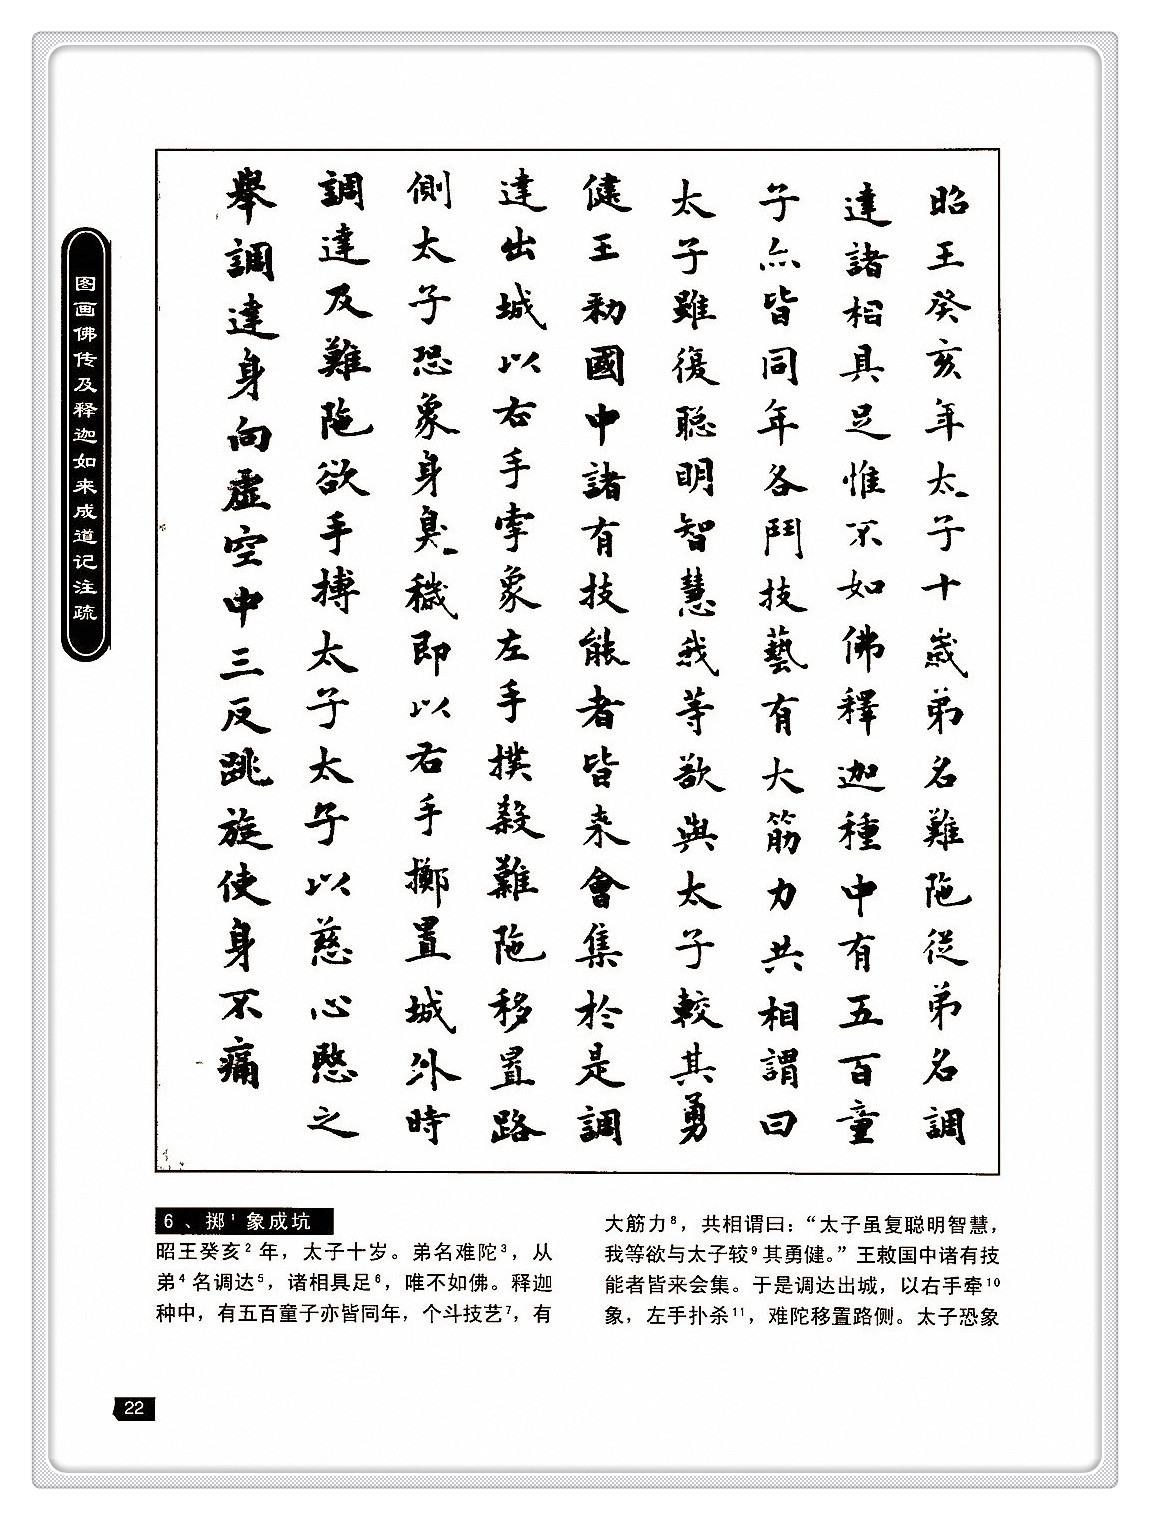 图画佛传及释迦如来成道记注疏
昭王癸亥年太子十歲弟名難陁從弟名調
達諸相具足惟不如佛釋迦種中有五百童
子亦皆同年各鬥技藝有大筋力共相謂曰
太子雖復聪明智慧我等欲與太子較其勇
健王勅國中諸有技能者皆来會集於是調
達出城以右手牽象左手撲殺難陁移置路
側太子恐象身臭穢即以右手擲置城外時
調達及難陁欲手搏太子太子以慈心愍之
舉調達身向虛空中三反跳旋使身不痛
6、掷¹象成坑
昭王癸亥²年，太子十岁。弟名难陀³，从
弟⁴名调达⁵，诸相具足⁶，唯不如佛。释迦
种中，有五百童子亦皆同年，个斗技艺⁷，有
大筋力⁸，共相谓曰：“太子虽复聪明智慧，
我等欲与太子较⁹其勇健。”王敕国中诸有技
能者皆来会集。于是调达出城，以右手牵¹⁰
象，左手扑杀¹¹，难陀移置路侧。太子恐象
22